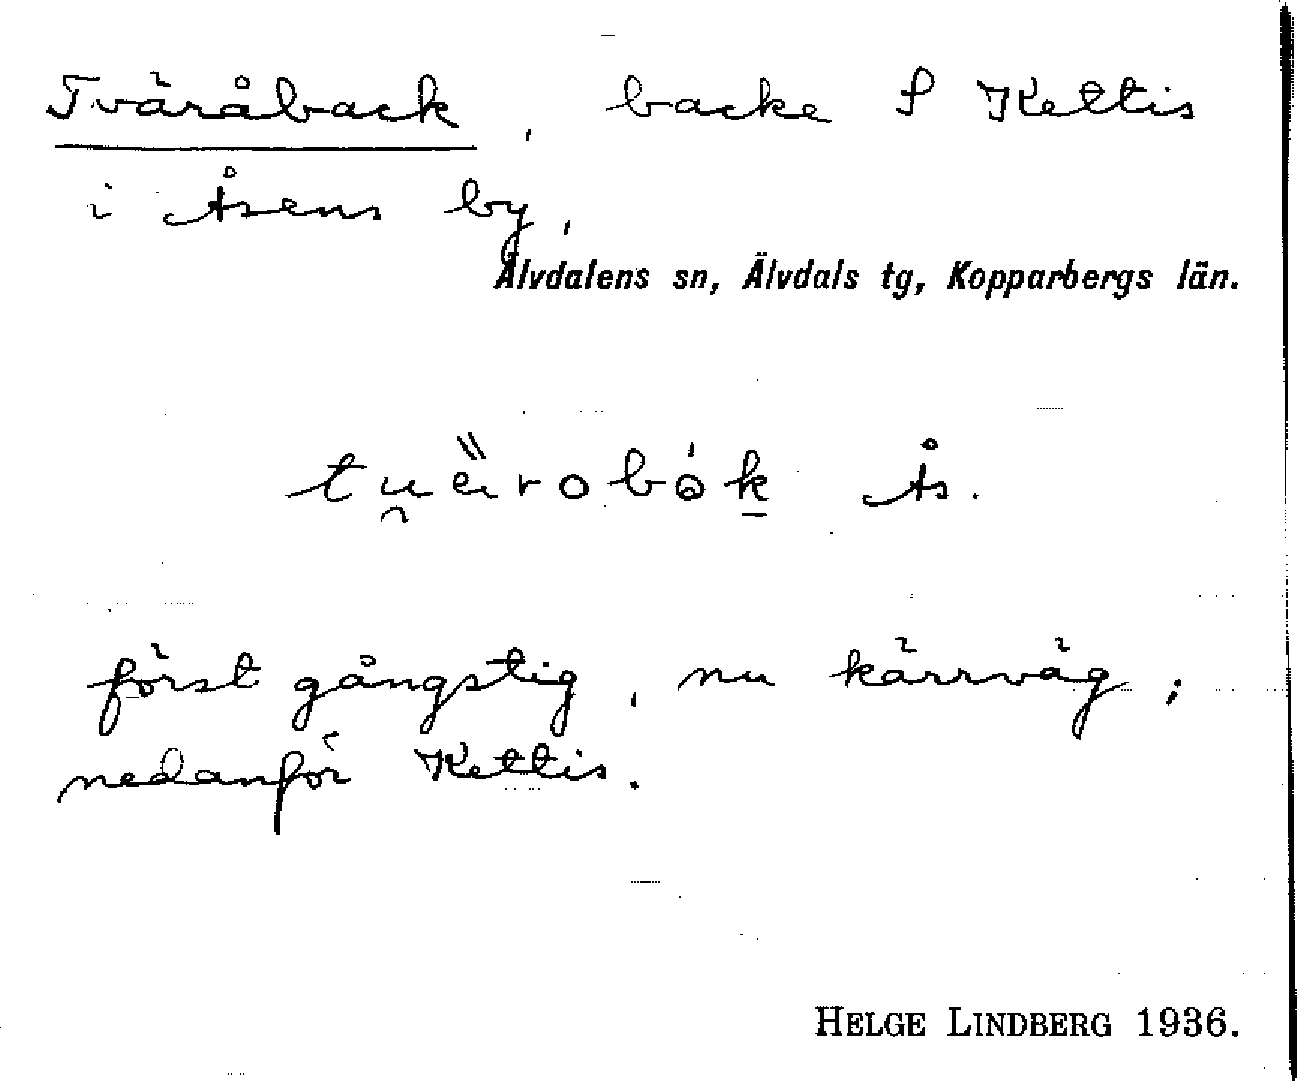 Tväråback, backe S Kettis
i Åsens by,
Älvdalens sn, Älvdals tg, Kopparbergs län.
tu̯èrobók Ås.
först gångstig, nu kärrväg;
nedanför Kettis.
HELGE LINDBERG 1936.